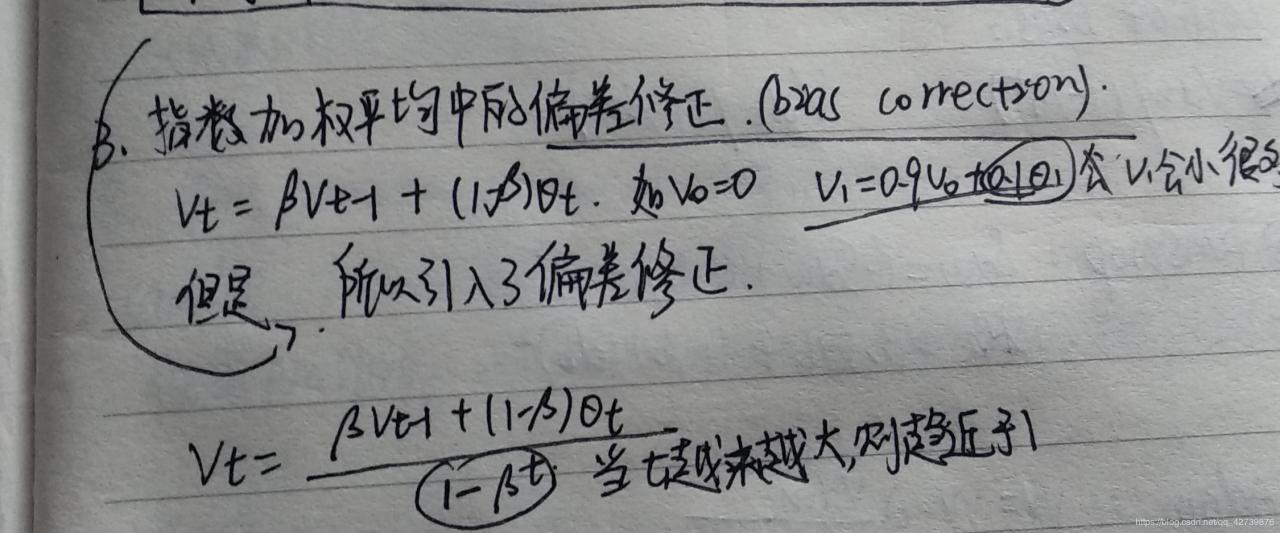 3. 指数加权平均中的偏差修正.(bias correction).
Vt = βVt-1 + (1-β)θt. 如V0=0 V1=0.9V0+0.1θ1 会 V1会小很多
但是, 所以引入了偏差修正.
Vt = (βVt-1 + (1-β)θt) / (1-β^t) 当t越来越大,则趋近于1
https://blog.csdn.net/qq_42739876